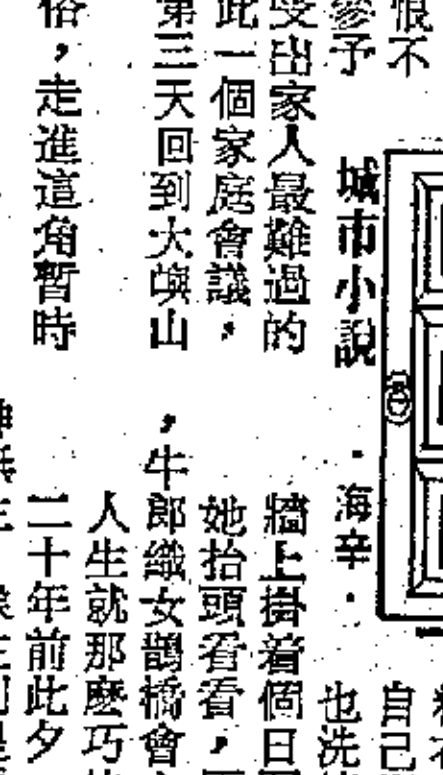 恨不
參予
受出家人最難過的
此一個家庭會議，
第三天回到大嶼山
俗，走進這角暫時
城市小說
·海辛·
自己
也洗
牆上掛着個日
她抬頭看看，
，牛郎織女鵲橋會
人生就那麼巧
二十年前此夕